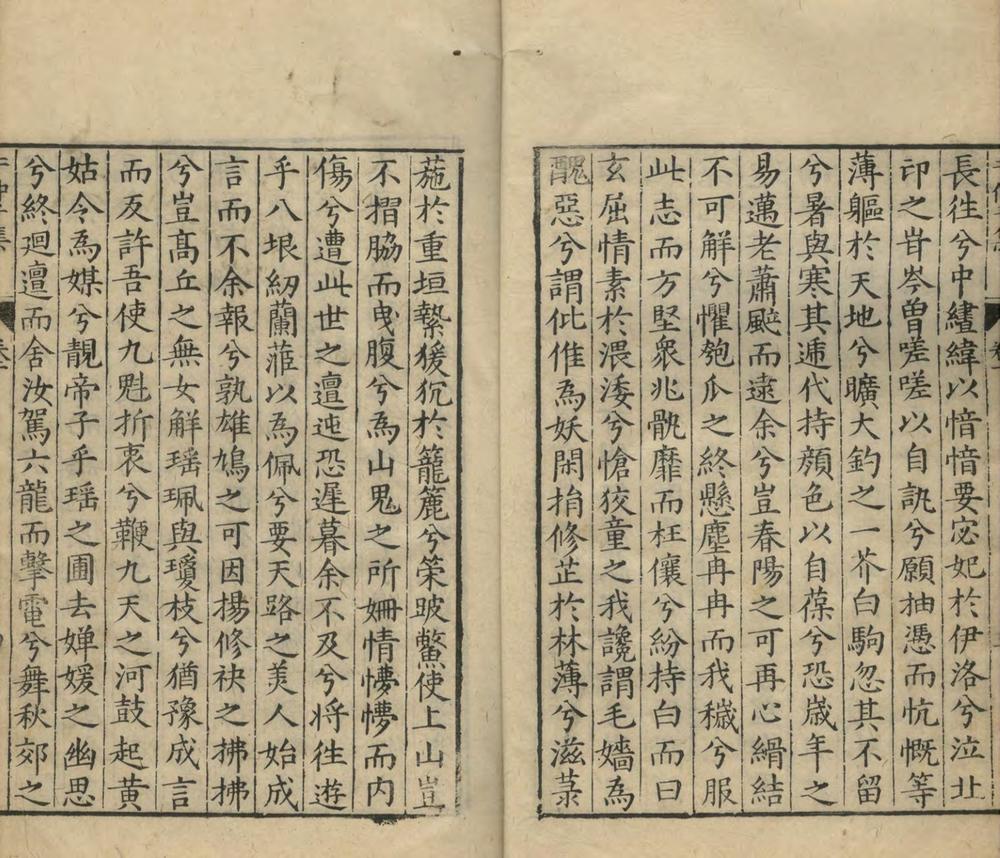 長徃兮中繣緯以愔愔要宓妃於伊洛兮泣北
印之岝岑曽嗟嗟以自訊兮願抽憑而忼慨等
薄軀於天地兮曠大鈞之一芥白駒忽其不留
兮暑與寒其逓代持顔色以自葆兮恐歳年之
易邁老蕭颼而逮余兮豈春陽之可再心縎結
不可解兮懼匏瓜之終懸塵冉冉而我穢兮服
此志而方堅衆兆骩靡而枉儴兮紛持白而曰
玄屈情素於渨涹兮愴狡童之我讒謂毛嬙為
醜惡兮謂仳倠為妖閑捐修芷於林薄兮滋菉
葹於重垣縶猨狖於籠簏兮策跛鱉使上山豈
不摺脇而曳腹兮為山鬼之所姍情懜懜而内
傷兮遭此世之邅迍恐遲暮余不及兮将徃遊
乎八垠紉蘭蓀以為佩兮要天路之美人始成
言而不余報兮孰雄鳩之可因揚修袂之拂拂
兮豈髙丘之無女解瑶珮與瓊枝兮猶豫成言
而反許吾使九魁折衷兮鞭九天之河鼓起黄
姑令為媒兮靚帝子乎瑶之圃去嬋媛之幽思
兮終廻邅而舍汝駕六龍而擊電兮舞秋郊之